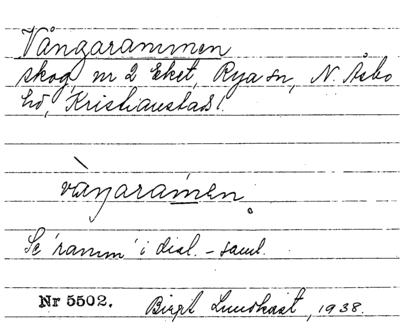 Vångarammen
skog, nr 2 Eket, Rya sn, N. Åsbo
hd, Kristianstads l.
vàŋaramen
Se 'ramm' i dial. - saml.
Nr 5502. Birgit Lundkvist, 1938.